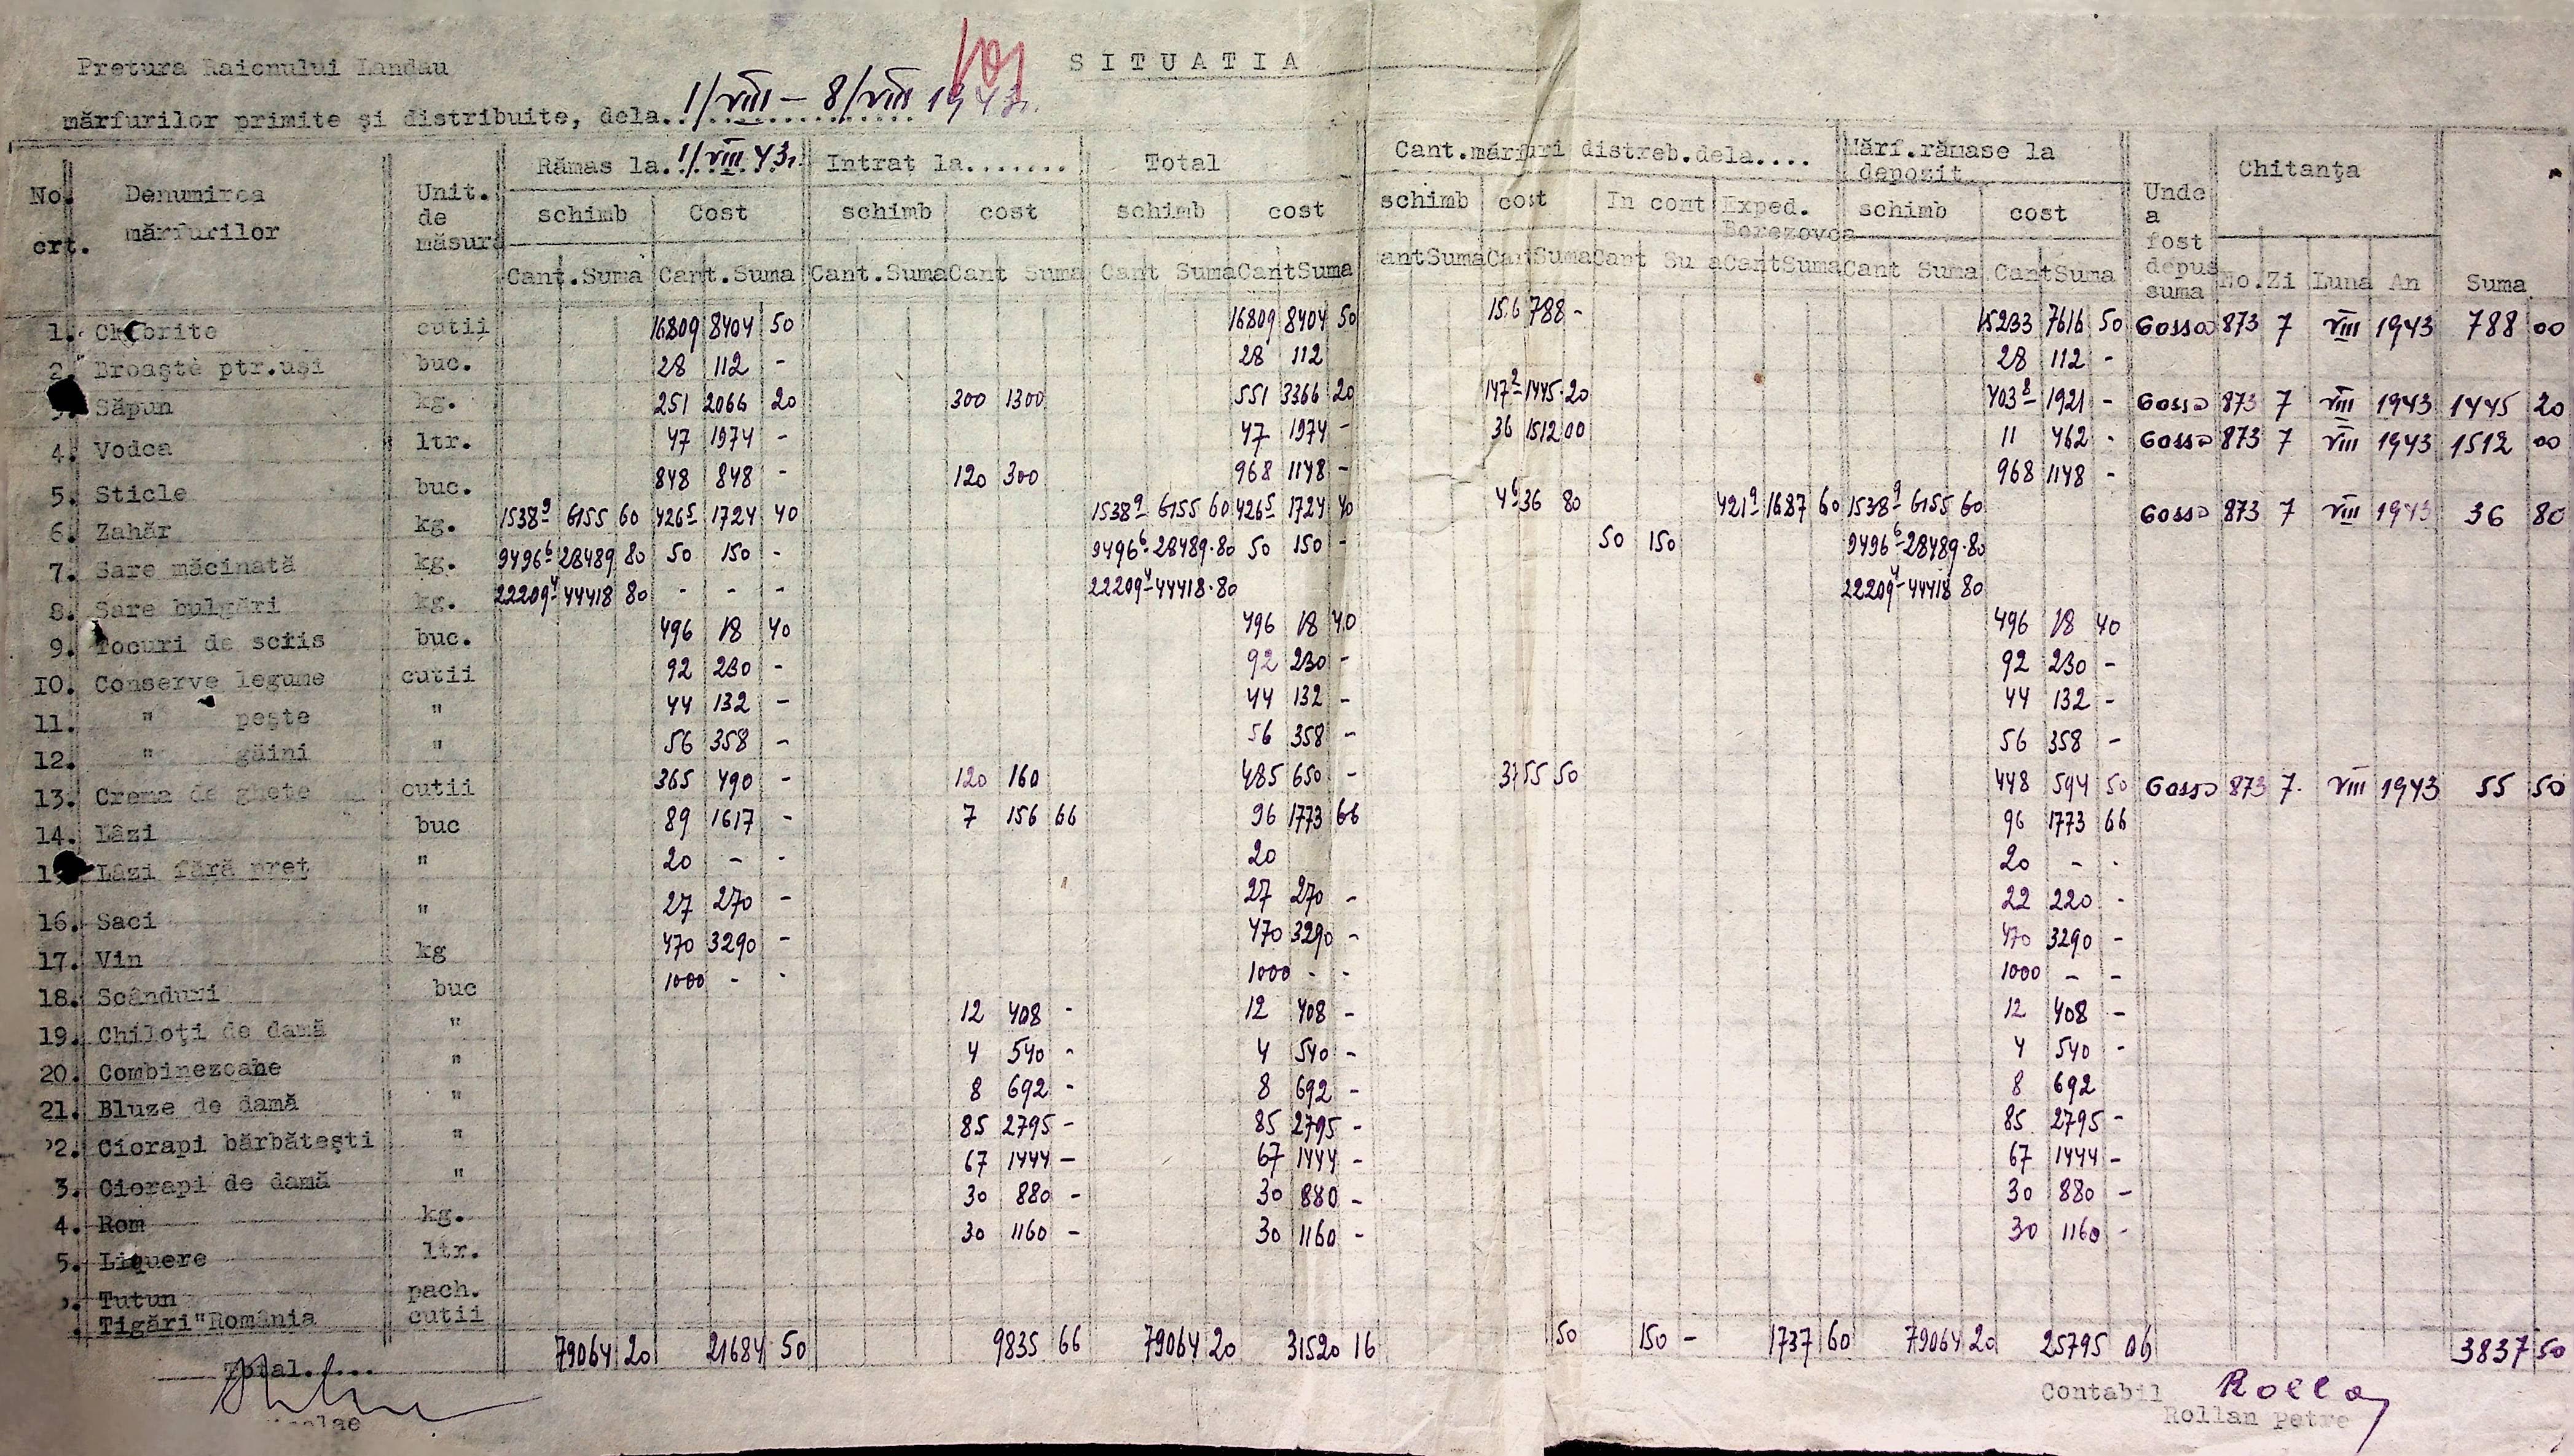 SITUATIA
Pretura Raionului Landau
mărfurilor primite şi distribuite, dela. 1/VIII – 8/VIII 1943.
No. crt. Denumirea mărfurilor Unit. de măsură Rămas la. 1/VIII 43. Intrat la....... Total Cant.mărfuri distreb.dela.... Mărf.rămase la deposit Unde a fost depus suma Chitanţa
schimb Cost schimb cost schimb cost schimb cost In cont Exped. Berezovca schimb cost
Cant.Suma Cant.Suma Cant.Suma Cant Suma Cant Suma Cant Suma Cant Suma Cant Suma Cant Suma Cant Suma Cant Suma No. Zi Luna An Suma
1. Chibrite cutii 16809 8404 50 16809 8404 50 156 788 - 15233 7616 50 Gossa 873 7 VIII 1943 788 00
2. Broaşte ptr.uşi buc. 28 112 - 28 112 28 112 -
Săpun kg. 251 2066 20 300 1300 551 3366 20 147 2 1445.20 403 8 1921 - Gossa 873 7 VIII 1943 1445 20
4. Vodca ltr. 47 1974 - 47 1974 - 36 1512 00 11 462 - Gossa 873 7 VIII 1943 1512 00
5. Sticle buc. 848 848 - 120 300 968 1148 - 968 1148 -
6. Zahăr kg. 1538 9 6155 60 426 5 1724 40 1538 9 6155 60 426 5 1724 40 4 6 36 80 421 9 1687 60 1538 9 6155 60 Gossa 873 7 VIII 1943 36 80
7. Sare măcinată kg. 9496 6 28489 80 50 150 - 9496 6 28489.80 50 150 - 50 150 9496 6 28489.80
8. Sare bulgări kg. 22209 4 44418 80 - - - 22209 4 44418.80 22209 4 44418 80
9. Tocuri de scris buc. 496 18 40 496 18 40 496 18 40
10. Conserve legume cutii 92 230 - 92 230 - 92 230 -
11. " peşte " 44 132 - 44 132 - 44 132 -
12. " găini " 56 358 - 56 358 - 56 358 -
13. Crema de ghete cutii 365 490 - 120 160 485 650 - 37 55 50 448 594 50 Gossa 873 7. VIII 1943 55 50
14. Lăzi buc 89 1617 - 7 156 66 96 1773 66 96 1773 66
Lăzi fără preţ " 20 - - 20 20 - -
16. Saci " 27 270 - 27 270 - 22 220 -
17. Vin kg 470 3290 - 470 3290 - 470 3290 -
18. Scânduri buc 1000 - - 1000 - - 1000 - -
19. Chiloţi de damă " 12 408 - 12 408 - 12 408 -
20. Combinezoane " 4 540 - 4 540 - 4 540 -
21. Bluze de damă " 8 692 - 8 692 - 8 692
22. Ciorapi bărbăteşti " 85 2795 - 85 2795 - 85 2795 -
3. Ciorapi de damă " 67 1444 - 67 1444 - 67 1444 -
4. Rom kg. 30 880 - 30 880 - 30 880 -
5. Liquere ltr. 30 1160 - 30 1160 - 30 1160 -
Tutun pach.
Tigări "România cutii
Total..... 79064 20 21684 50 9835 66 79064 20 31520 16 50 150 - 1737 60 79064 20 25795 06 3837 50
Contabil Rolla
Rollan Petre